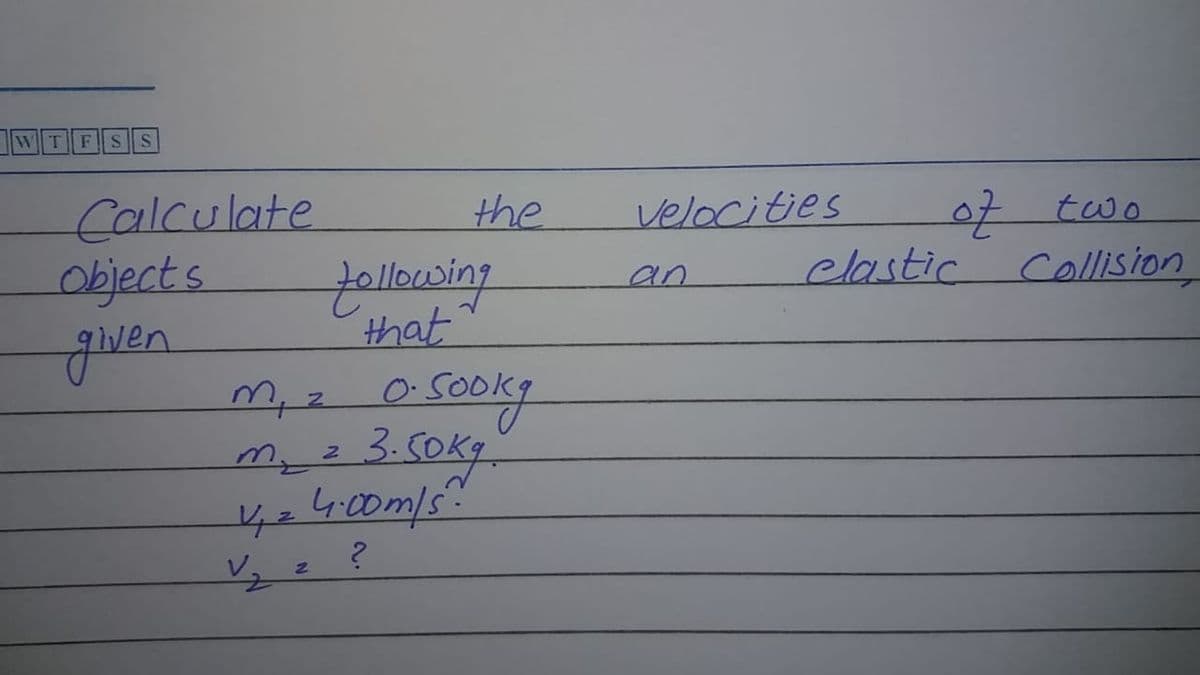 W T F S S
Calculate the velocities of two
objects following an elastic Collision,
given that
m₁ = 0.500kg
m₂ = 3.50kg.
V₁ = 4.00m/s?
V₂ = ?